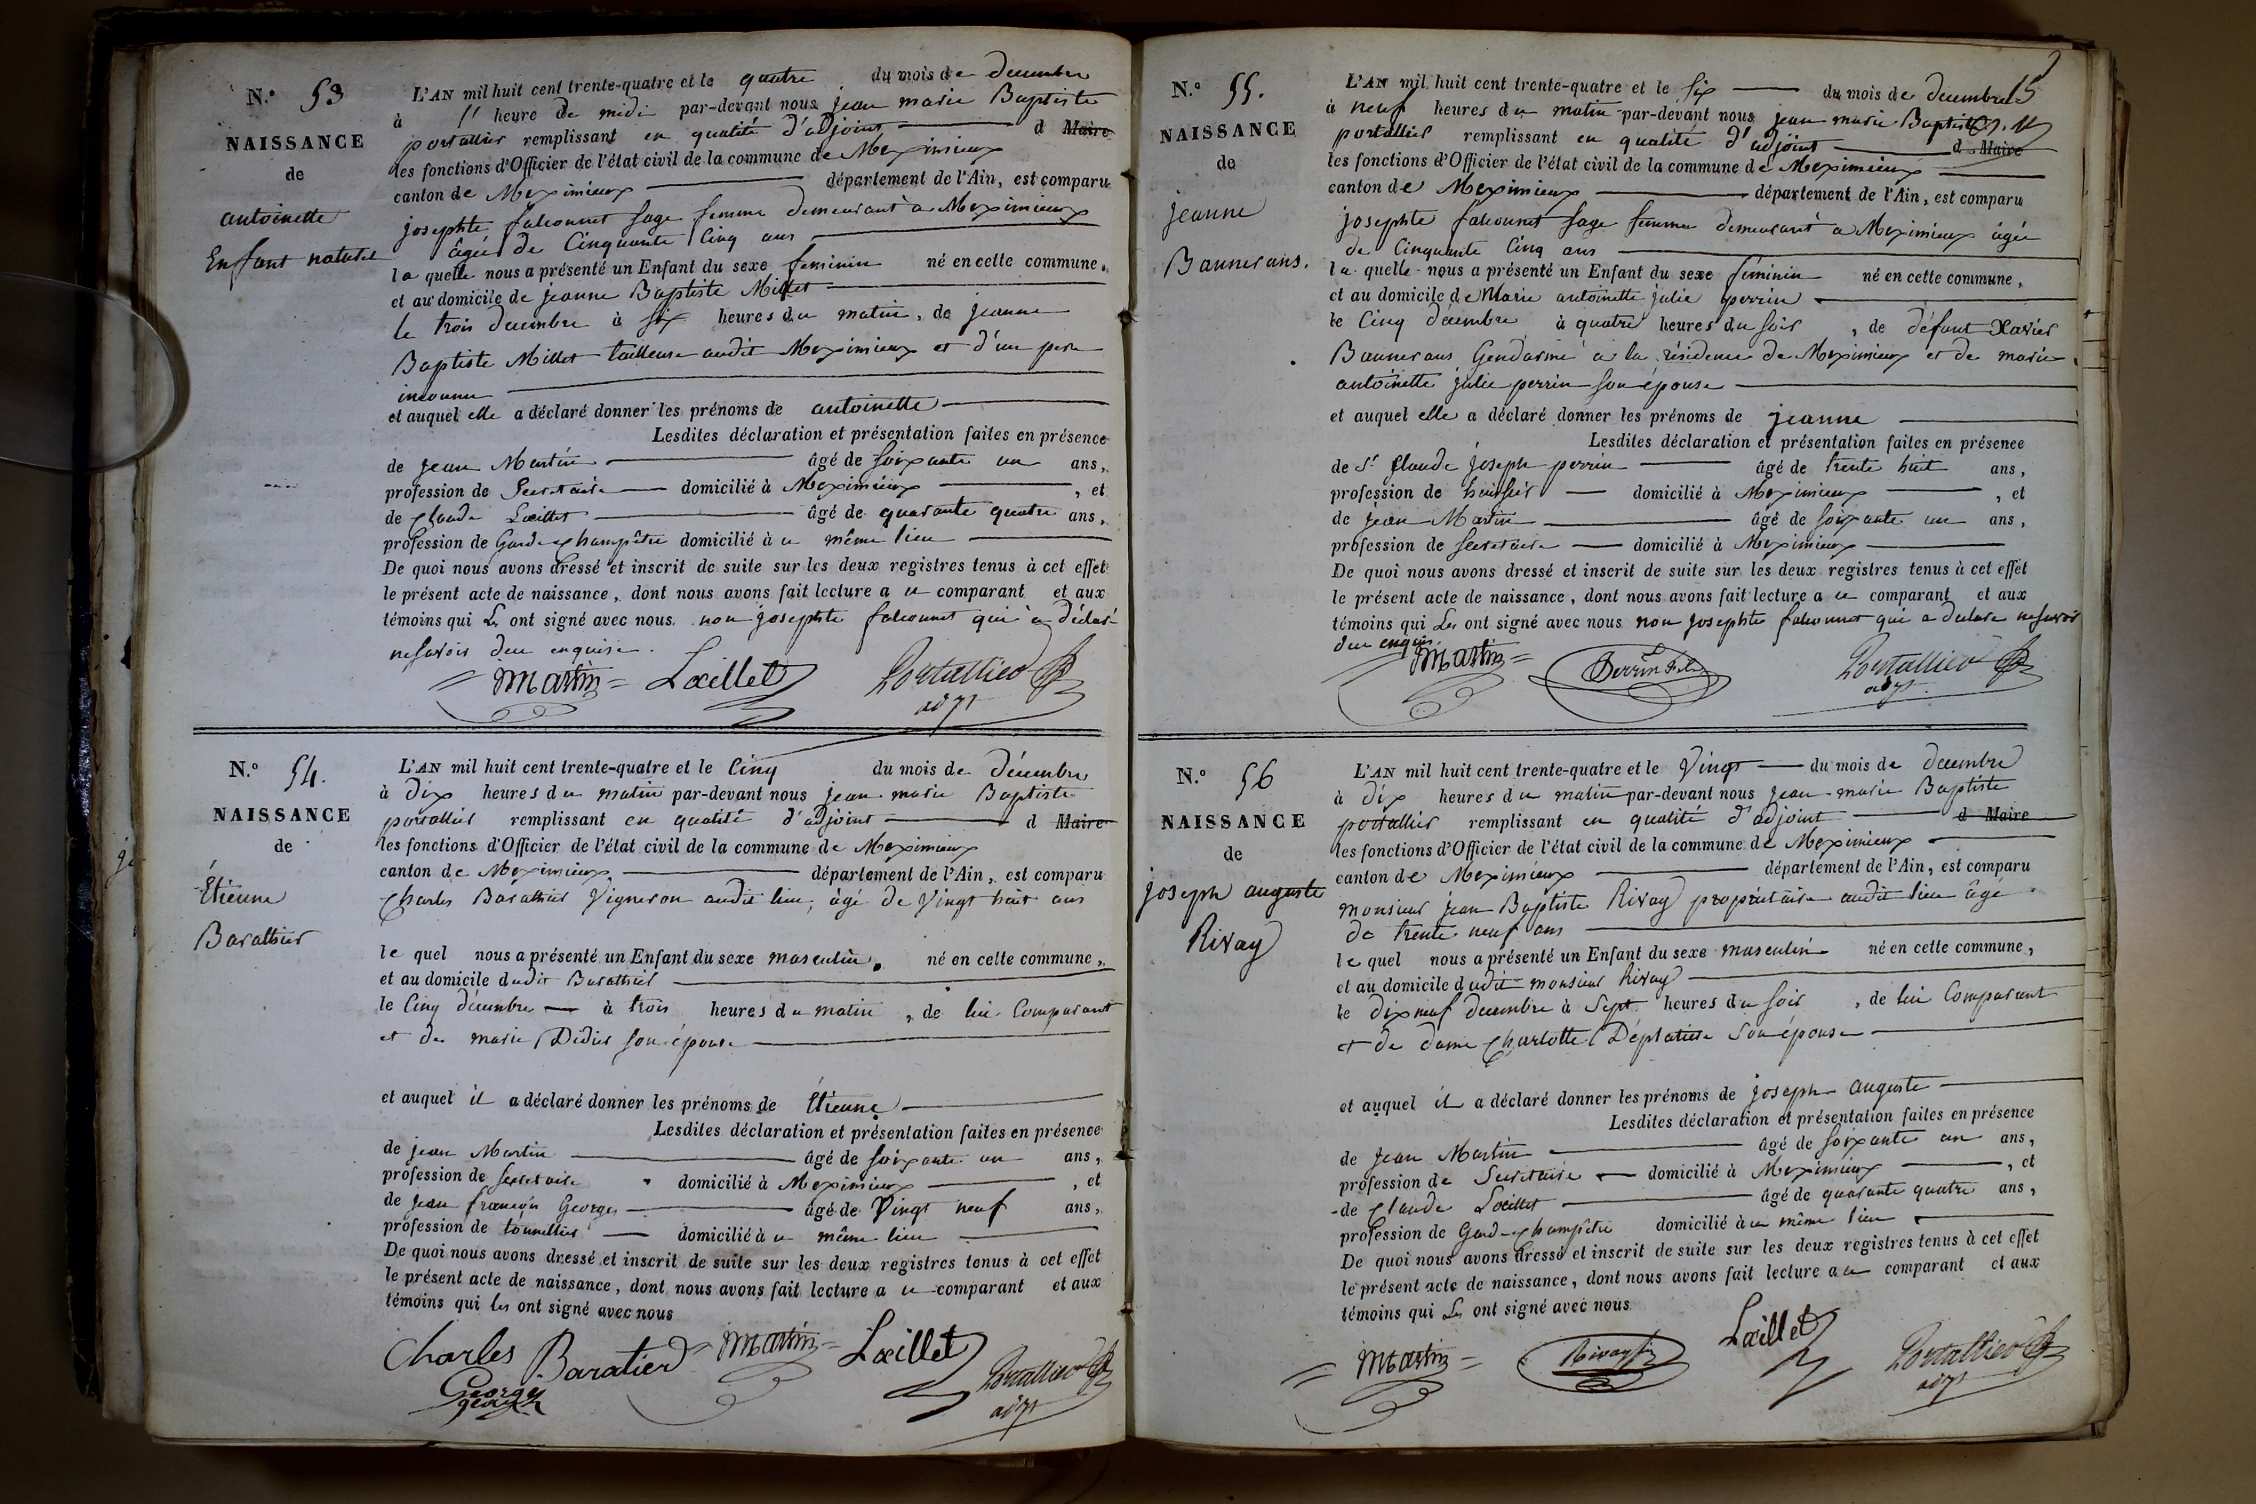 N.° 53
NAISSANCE
de
antoinette
Enfant naturel
L'AN mil huit cent trente-quatre et le quatre du mois de decembre
à heure de midi par-devant nous jean marie Baptiste
portallier remplissant en qualité d'adjoint d Maire
les fonctions d'Officier de l'état civil de la commune de Meximieux
canton de Meximieux département de l'Ain, est comparu
josephte falconnet sage femme demeurant à Meximieux
âgée de Cinquante Cinq ans
la quelle nous a présenté un Enfant du sexe feminin né en cette commune,
et au domicile de jeanne Baptiste Millet
le trois decembre à six heures du matin, de jeanne
Baptiste Millet tailleuse audit Meximieux et d'un pere
inconnu
et auquel elle a déclaré donner les prénoms de antoinette
Lesdites déclaration et présentation faites en présence
de jean Martin âgé de soixante un ans,
profession de Secretaire domicilié à Meximieux, et
de claude Lœillet âgé de quarante quatre ans,
profession de Garde champêtre domicilié à u même lieu
De quoi nous avons dressé et inscrit de suite sur les deux registres tenus à cet effet
le présent acte de naissance, dont nous avons fait lecture a u comparant et aux
témoins qui les ont signé avec nous. non josephte falconnet qui a déclaré
ne savoir du enquise.
Martin Lœillet Portallier adjt
N.° 54.
NAISSANCE
de
Étienne
Barathier
L'AN mil huit cent trente-quatre et le Cinq du mois de décembre
à dix heures du matin par-devant nous jean marie Baptiste
portallier remplissant en qualité d'adjoint d Maire
les fonctions d'Officier de l'état civil de la commune de Meximieux
canton de Meximieux département de l'Ain, est comparu
Charles Barathier Vigneron audit lieu, âgé de Vingt huit ans
le quel nous a présenté un Enfant du sexe masculin, né en cette commune,
et au domicile dudit Barathier
le Cinq décembre à trois heures du matin, de lui Comparant
et de marie Didier son épouse
et auquel il a déclaré donner les prénoms de Étienne
Lesdites déclaration et présentation faites en présence
de jean Martin âgé de soixante un ans,
profession de secretaire domicilié à Meximieux, et
de jean françois Georges âgé de Vingt neuf ans,
profession de tonnellier domicilié à u même lieu
De quoi nous avons dressé et inscrit de suite sur les deux registres tenus à cet effet
le présent acte de naissance, dont nous avons fait lecture a u comparant et aux
témoins qui les ont signé avec nous
Charles Baratier Martin Lœillet Portallier
George adjt
N.° 55.
NAISSANCE
de
jeanne
Bannerans.
15
L'AN mil huit cent trente-quatre et le six du mois de decembre
à neuf heures du matin par-devant nous jean marie Baptiste
portallier remplissant en qualité d'adjoint d Maire
les fonctions d'Officier de l'état civil de la commune de Meximieux
canton de Meximieux département de l'Ain, est comparu
josephte falconnet sage femme demeurant à Meximieux âgée
de Cinquante Cinq ans
la quelle nous a présenté un Enfant du sexe féminin né en cette commune,
et au domicile de Marie antoinette julie perrin
le Cinq décembre à quatre heures du soir, de défunt Xavier
Bannerans Gendarme à la résidence de Meximieux et de marie
antoinette julie perrin son épouse
et auquel elle a déclaré donner les prénoms de jeanne
Lesdites déclaration et présentation faites en présence
de Sr Claude joseph perrin âgé de trente huit ans,
profession de huissier domicilié à Meximieux, et
de jean Martin âgé de soixante un ans,
profession de secretaire domicilié à Meximieux
De quoi nous avons dressé et inscrit de suite sur les deux registres tenus à cet effet
le présent acte de naissance, dont nous avons fait lecture a u comparant et aux
témoins qui Les ont signé avec nous non josephte falconnet qui a declaré ne savoir
du enquise
Martin Perrin Portallier
adjt
N.° 56
NAISSANCE
de
joseph auguste
Rivay
L'AN mil huit cent trente-quatre et le Vingt du mois de decembre
à dix heures du matin par-devant nous jean marie Baptiste
portallier remplissant en qualité d'adjoint d Maire
les fonctions d'Officier de l'état civil de la commune de Meximieux
canton de Meximieux département de l'Ain, est comparu
monsieur jean Baptiste Rivay propriétaire audit lieu âgé
de trente neuf ans
le quel nous a présenté un Enfant du sexe masculin né en cette commune,
et au domicile dudit monsieur Rivay
le dix neuf decembre à Sept heures du soir, de lui Comparant
et de dame Charlotte Déplatière son épouse
et auquel il a déclaré donner les prénoms de joseph auguste
Lesdites déclaration et présentation faites en présence
de jean Martin âgé de soixante un ans,
profession de Secretaire domicilié à Meximieux, et
de claude Lœillet âgé de quarante quatre ans,
profession de Gard-champêtre domicilié à u même lieu
De quoi nous avons dressé et inscrit de suite sur les deux registres tenus à cet effet
le présent acte de naissance, dont nous avons fait lecture a u comparant et aux
témoins qui Les ont signé avec nous
Martin Rivay Lœillet Portallier
adjt